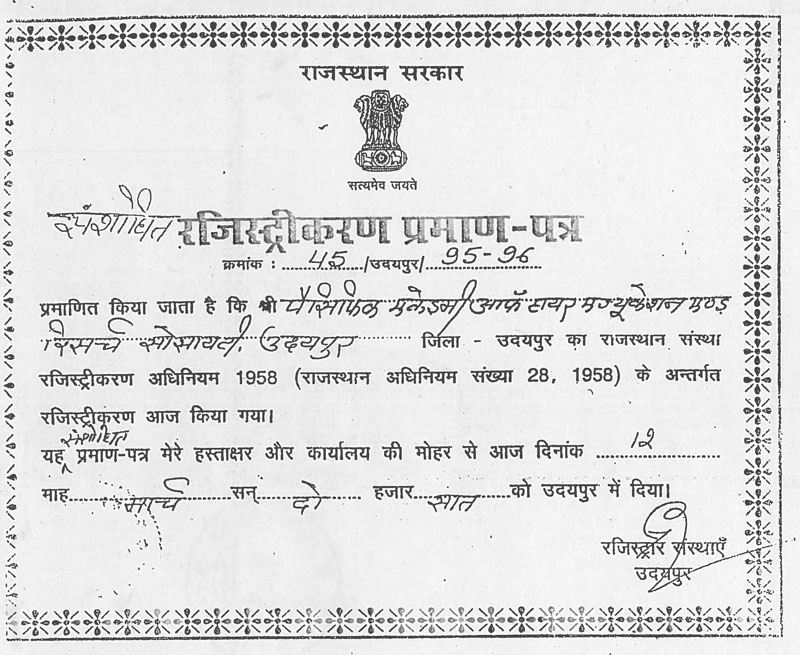 राजस्थान सरकार
सत्यमेव जयते
संशोधित रजिस्ट्रीकरण प्रमाण-पत्र
क्रमांक : 45 /उदयपुर/ 95-96
प्रमाणित किया जाता है कि श्री पैसिफिक एकेडमी ऑफ हायर एज्यूकेशन एण्ड
रिसर्च सोसायटी, उदयपुर जिला - उदयपुर का राजस्थान संस्था
रजिस्ट्रीकरण अधिनियम 1958 (राजस्थान अधिनियम संख्या 28, 1958) के अन्तर्गत
रजिस्ट्रीकरण आज किया गया।
यह संशोधित प्रमाण-पत्र मेरे हस्ताक्षर और कार्यालय की मोहर से आज दिनांक 12
माह मार्च सन् दो हजार सात को उदयपुर में दिया।
रजिस्ट्रार संस्थाएँ
उदयपुर